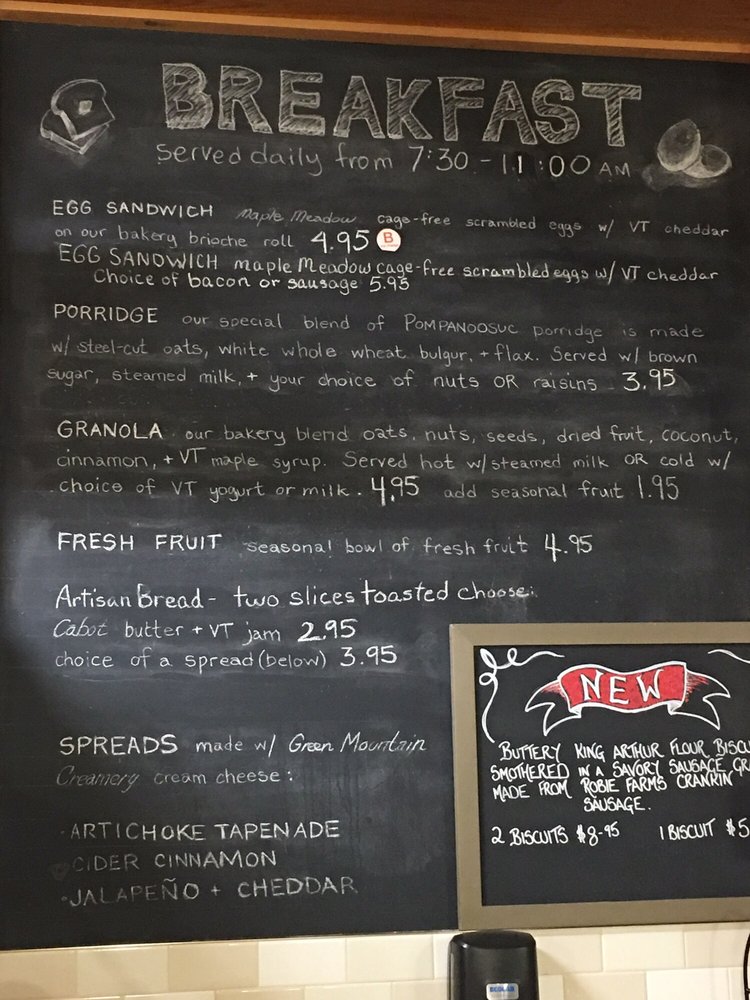 BREAKFAST
Served daily from 7:30 - 11:00 AM
EGG SANDWICH Maple Meadow cage-free scrambled eggs w/ VT cheddar
on our bakery brioche roll 4.95 B
EGG SANDWICH maple Meadow cage-free scrambled eggs w/ VT cheddar
Choice of bacon or sausage 5.95
PORRIDGE our special blend of POMPANOOSUC porridge is made
w/ steel-cut oats, white whole wheat, bulgur, + flax. Served w/ brown
sugar, steamed milk, + your choice of nuts OR raisins 3.95
GRANOLA our bakery blend oats, nuts, seeds, dried fruit, coconut,
cinnamon, + VT maple syrup. Served hot w/ steamed milk OR cold w/
choice of VT yogurt or milk. 4.95 add seasonal fruit 1.95
FRESH FRUIT seasonal bowl of fresh fruit 4.95
Artisan Bread - two slices toasted choose:
Cabot butter + VT jam 2.95
choice of a spread (below) 3.95
SPREADS made w/ Green Mountain
Creamery cream cheese:
· ARTICHOKE TAPENADE
· CIDER CINNAMON
· JALAPEÑO + CHEDDAR
NEW
BUTTERY KING ARTHUR FLOUR BISCU
SMOTHERED IN A SAVORY SAUSAGE GR
MADE FROM ROBIE FARMS CRANKIN'
SAUSAGE.
2 BISCUITS $8.95 1 BISCUIT $5
ECOLAB